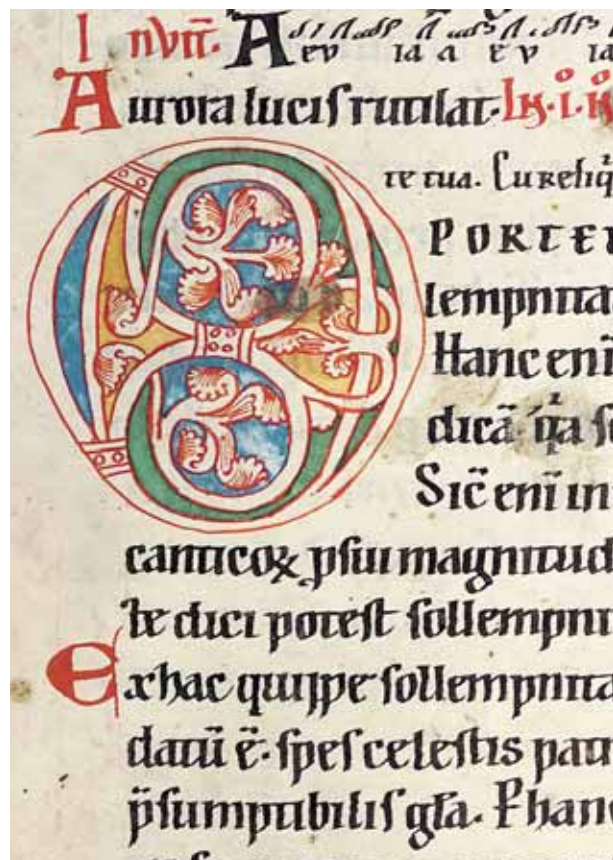 Invit̄. A
ev ia a e v ia
Aurora lucis rutilat. Lk̄. i. k
te tua. Cū reliq̄
OPORTET
lempnita
Hanc enī
dicā q̄a so
Sic̄ enī in
canticoꝝ ꝑ sui magnitud
te dici potest sollempni
Ex hac quippe sollempnita
datū ē. spes celestis patr
p̄sumptibilis gl̄a. P hanc